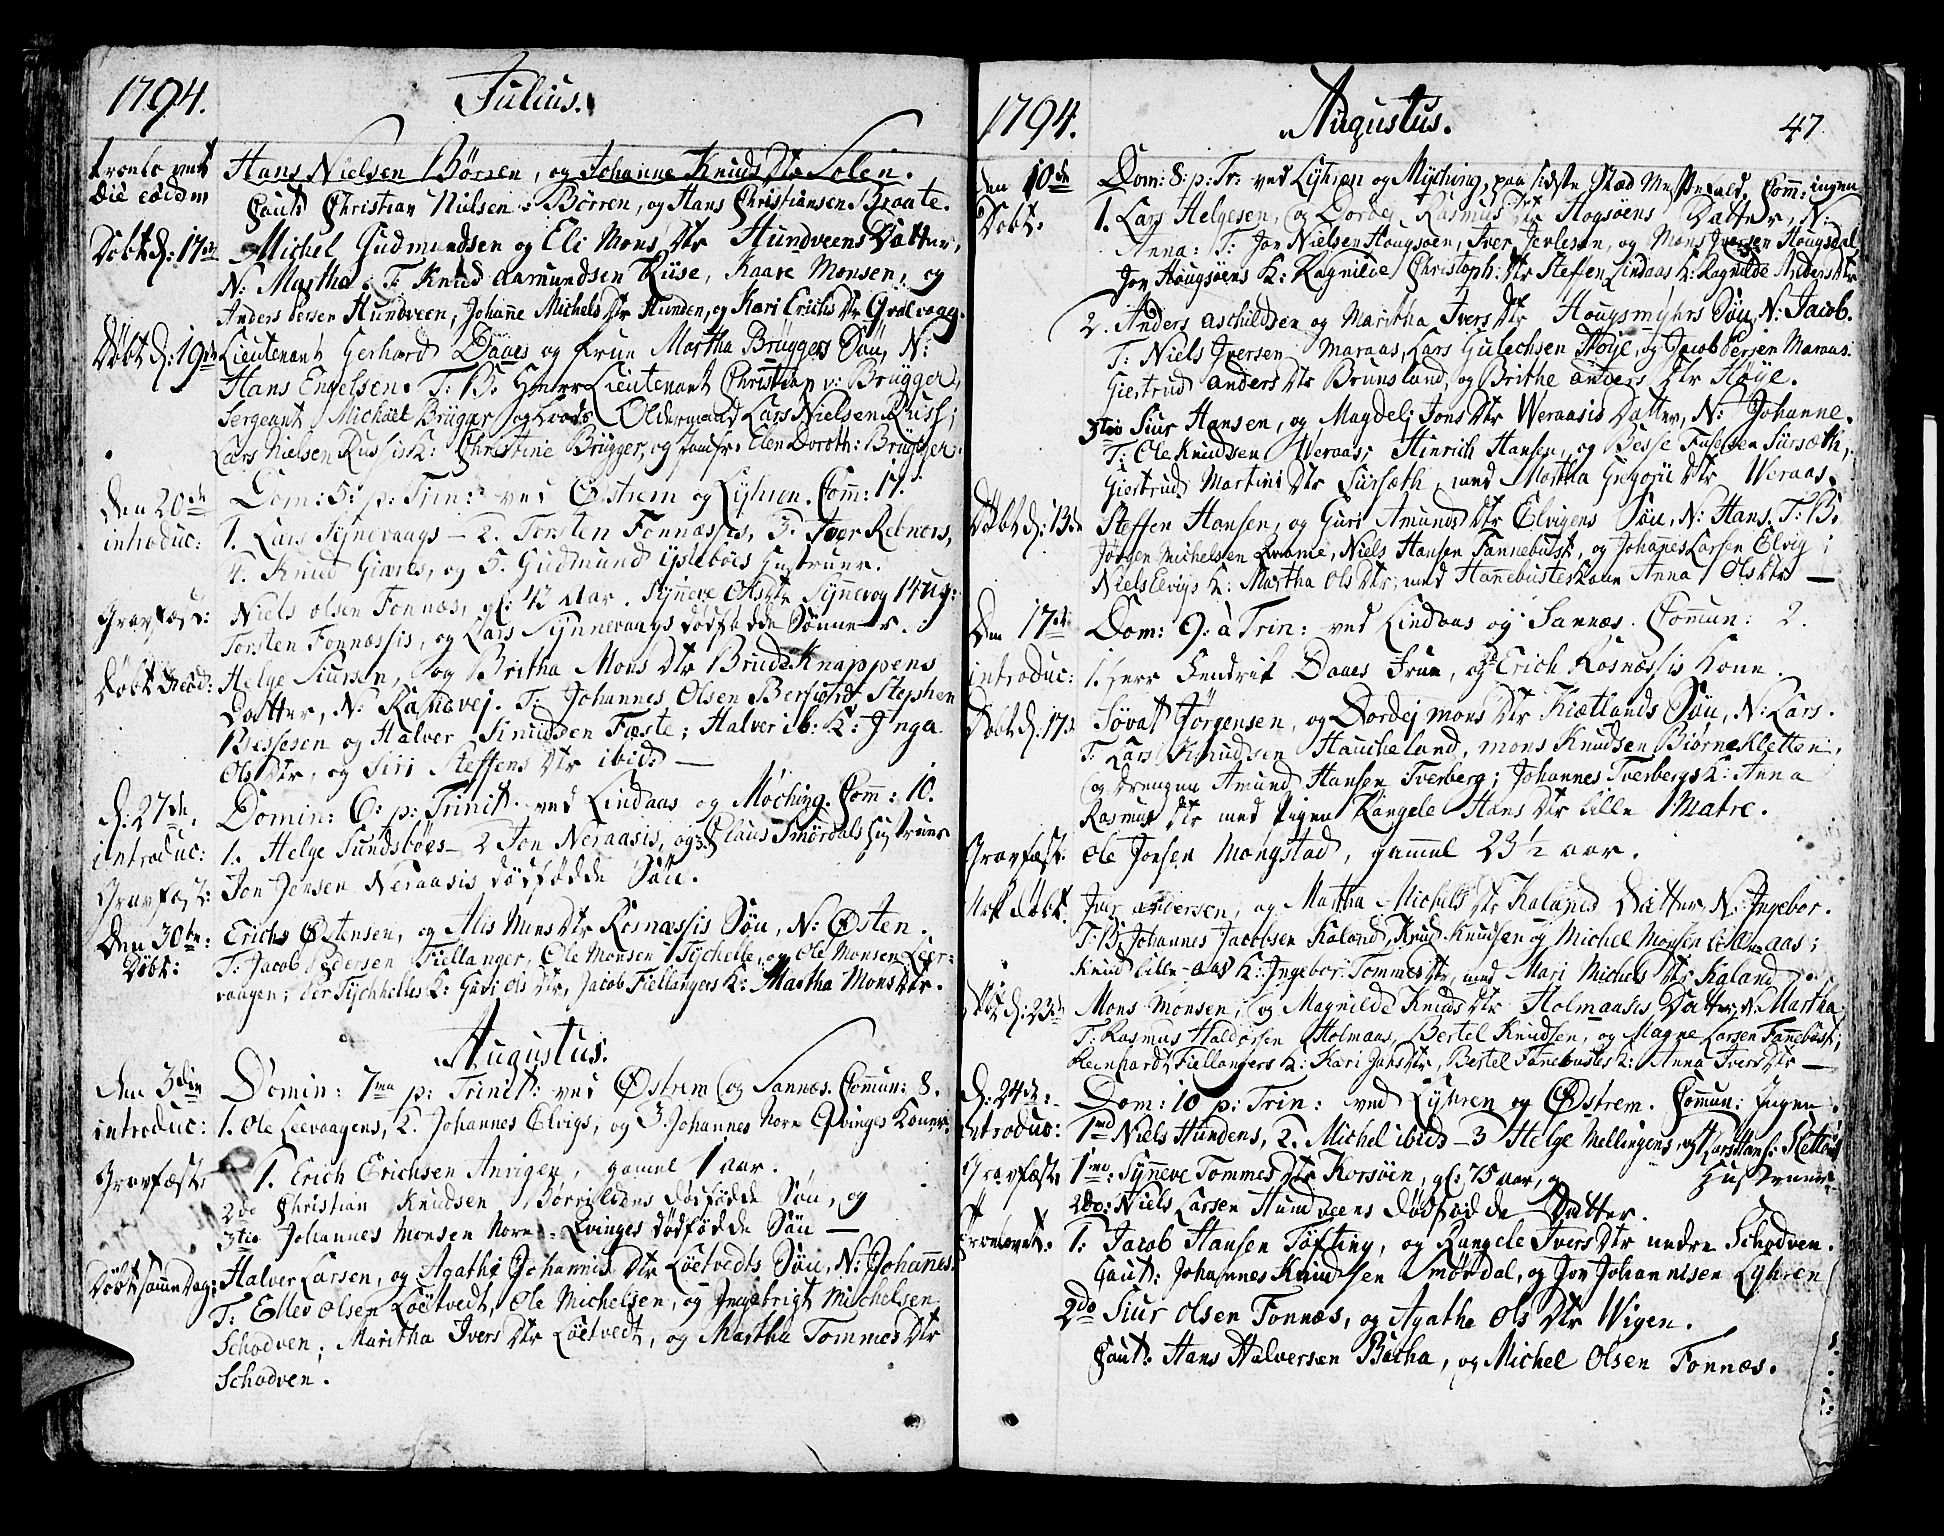 1794. Julius.
Hans Nielsen Börsen, og Johanne Knuds Dtr Solen.
Caut: Christian Nilsen Börren, og Hans Christiansen Braate.
Döbt d: 17de Michel Gudmundsen og Eli Mons Dtr Hundveens Datter,
N: Martha. T: Knud Aamundsen Riise, Kaare Monsen, og
Anders Persen Hundveen, Johañe Michels Dtr Hunden, og Kari Erichs Dtr
Döbt d: 19de Lieutenant Gerhard Daaes og Frue Martha Brüggers Sön, N:
Hans Engelsen. T: B: Herr Lieutenant Christian v: Brügger,
Sergeant Michael Brüger og Lods Oldermand Lars Nielsen Russ;
Lars Nielsen Russis K: Christine Brügger, og Jomfr. Elen Doroth: Brügger.
Den 20de Dom: 5: p: Trin: ved Östrem og Lyhren. Com: 17.
introduc: 1. Lars Synnevaags – 2. Torsten Fonnassis, 3. Iver Rebnors,
4. Knud Giæres, og 5. Gudmund ipseböes Hustruer.
Gravfæst: Niels Olsen Fonnæs, gl: 42 Aar. Synneve Ols Dtr Synnevog 14 Ug:
Torsten Fonnæssis, og Lars Synnevaags dödfödde Sönner.
Helge Siursen, og Britha Mons Dtr Brudeknappens
Datter, N: Randvej. T: Johannes Olsen Stephen
Bessesen og Halver Knudsen Fæste; Halver ib: K: Inga
Ols Dtr, og Siri Steffens Dtr ibid: —
d: 27de. Domin: 6: p: Trinit. ved Lindaas og Möching. Com: 10.
introduc: 1. Helge Sundsböes – 2 Jon Neraasis, og 3 Claus Smördals Hustruer
Gravfæst: Jon Jonsen Neraasis dödfödde Sön.
Den 30te: Erich Östensen, og Alis Mons Dtr Rosnæssis Sön, N: Østen.
Döbt: T: Jacob Pedersen Fiellanger, Ole Monsen Tychelle, og Ole Monsen Leer-
vaagen; Per Tychhelles K: Guri Ols Dtr, Jacob Fiellangers K: Martha Mons Dtr.
Augustus.
den 3die Domin: 7ma p: Trinit: ved Østrem og Sannæs. Commun: 8.
introduc: 1. Ole Leevaagens, 2. Johannes Elvigs, og 3. Johannes Nore Qvinges Koner.
Gravfæst: 1. Erich Erichsen Anrigen, gamel 1 aar.
2do Christian Knudsen Börrildens dödfödde Sön, og
3tio Johannes Monsen Nore Qvinges dödfödde Sön —
Döbt samme Dag: Halver Larsen, og Agathe Johannis Dtr Löetvedts Sön, N: Johannes.
T: Ellev Olsen Löetvedt, Ole Michelsen, og Ingebrigt Michelsen
Schodven; Maritha Ivers Dtr Löetvedt, og Martha Tommes Dtr
Schodven.
1794. Augustus. 47
den 10de Dom: 8: p: Tr: ved Lyhren og Myching, paa sidste Stæd Messefald, Com: ingen
Döbt. 1. Lars Helgesen, og Dordej Rasmus Dtr Hogsöens Datter, N:
Anna: T: Jon Nielsen Hougsöen, Iver Jerlesen, og Mons Iversen Hougsdal
Jon Hougsöens K: Ragnilde Christoph: Dtr Steffen Lindaas K: Ragnilde Anders Dtr
2. Anders Aschildsen og Maritha Ivers Dtr Hougsmyhrs Sön, N: Jacob.
T: Niels Iversen Maraas, Lars Gulechsen Höye, og Jacob Persen Maraas.
Giertrud Anders Dtr Brunsland, og Brithe Anders Dtr Höye.
3tio Siur Hansen, og Magdel: Jons Dtr Weraasis Datter, N: Johanne.
T: Ole Knudsen Weraas, Hinrich Hansen, og Besse Fusesen Sürsæth;
Giertrud Martini Dtr Sürsæth, med Martha Gregorii Dtr Weraas.
Döbt d: 13de Steffen Hansen, og Guri Amunds Dtr Elvigens Sön, N: Hans. T: B.
Jörgen Michelsen Qvame, Niels Hansen Fannebust, og Johañes Larsen Elvig;
Niels Elvigs K: Martha Ols Dtr, med Hanebusteskone Anna Ols Dtr —
Den 17de Dom: 9: à Trin: ved Lindaas og Sannæs. Commun: 2.
introduc: 1. Herr Hendrik Daaes Frue, og 2 Erich Rosnæssis Kone.
Döbt d: 17. Sövat Jörgensen, og Dordej Mons Dtr Kiætlands Sön, N: Lars.
T: Lars Knudsen Haucheland, Mons Knudsen Biörnekletten,
og Drengen Amund Hansen Tverberg; Johannes Tverbergs K: Anna
Rasmus Dtr med Pigen Rangele Hans Dtr Lille Matre.
Gravfæst: Ole Jonsen Mongstad, gammel 23 1/2 aar.
Nok döbt. Iver Andersen, og Martha Michels Dtr Kalands Datter, N: Ingebor.
T: B. Johannes Jacobsen Kaland, Knud Knudsen og Michel Monsen Lille-aas;
Knud Lille-aas K: Ingebor Tommes Dtr, med Mari Michels Dtr Kaland
Döbt d: 23de Mons Monsen, og Magnilde Knuds Dtr Holmaasis Datter, N: Martha
T: Rasmus Haldorsen Holmaas, Bertel Knudsen, og Magne Larsen Fannebust;
Reinhardt Fiellangers K: Kari Jahs Dtr, Bertel Fannebustes K: Anna Ivers Dtr —
d: 24de: Dom: 10 p: Trin: ved Lyhren og Østrem. Comun: Ingen.
introduc: 1md Niels Hundens, 2. Michel ibid – 3 Helge Mellingens, og 4. Lars Hans: Kletten
Hustruer.
Gravfæst: 1mo: Synneve Tommes Dtr Korsöen, gl: 75 aar, og
2do: Niels Larsen Hundveens Dödfödde Datter.
Trolovet: 1. Jacob Hansen Töfting, og Rangele Ivers Dtr nedre Schodven.
Caut: Johannes Knudsen Smördal, og Jon Johannisen Lyhren
2do Siur Olsen Fonnæs, og Agathe Ols Dtr Wigen.
Caut: Hans Halversen Bacha, og Michel Olsen Fonnæs.